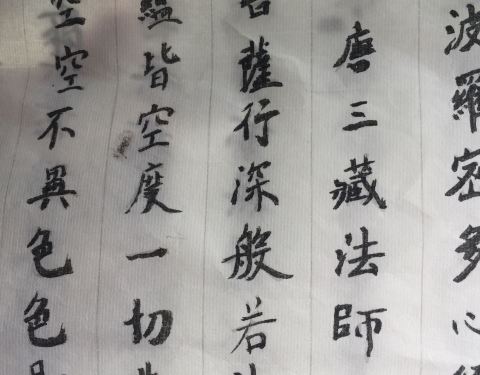 波羅密多心
唐三藏法師
薩行深般若
皆空度一切
空不異色色